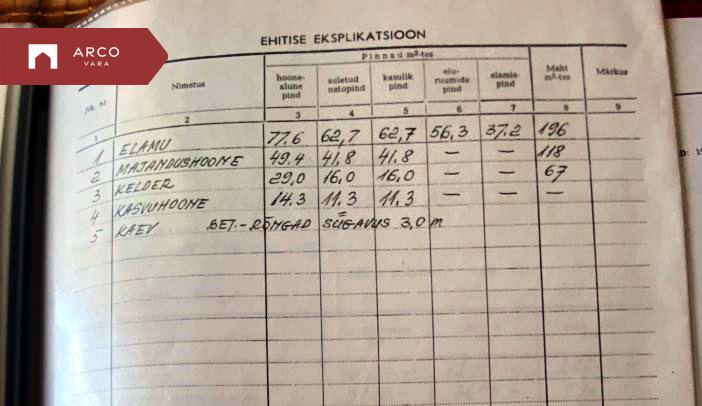 ARCO
VARA
EHITISE EKSPLIKATSIOON
Jrk. nr. Nimetus Pinnad m²-tes Maht m³-tes Märkus
hoone-alune pind suletud netopind kasulik pind elu-ruumide pind elamis-pind
1 2 3 4 5 6 7 8 9
1 ELAMU 77.6 62,7 62,7 56,3 37.2 196
2 MAJANDUSHOONE 49.4 41.8 41.8 — — 118
3 KELDER 29,0 16,0 16,0 — — 67
4 KASVUHOONE 14.3 11.3 11.3 — — —
5 KAEV BET.-RÕNGAD SÜGAVUS 3,0 m